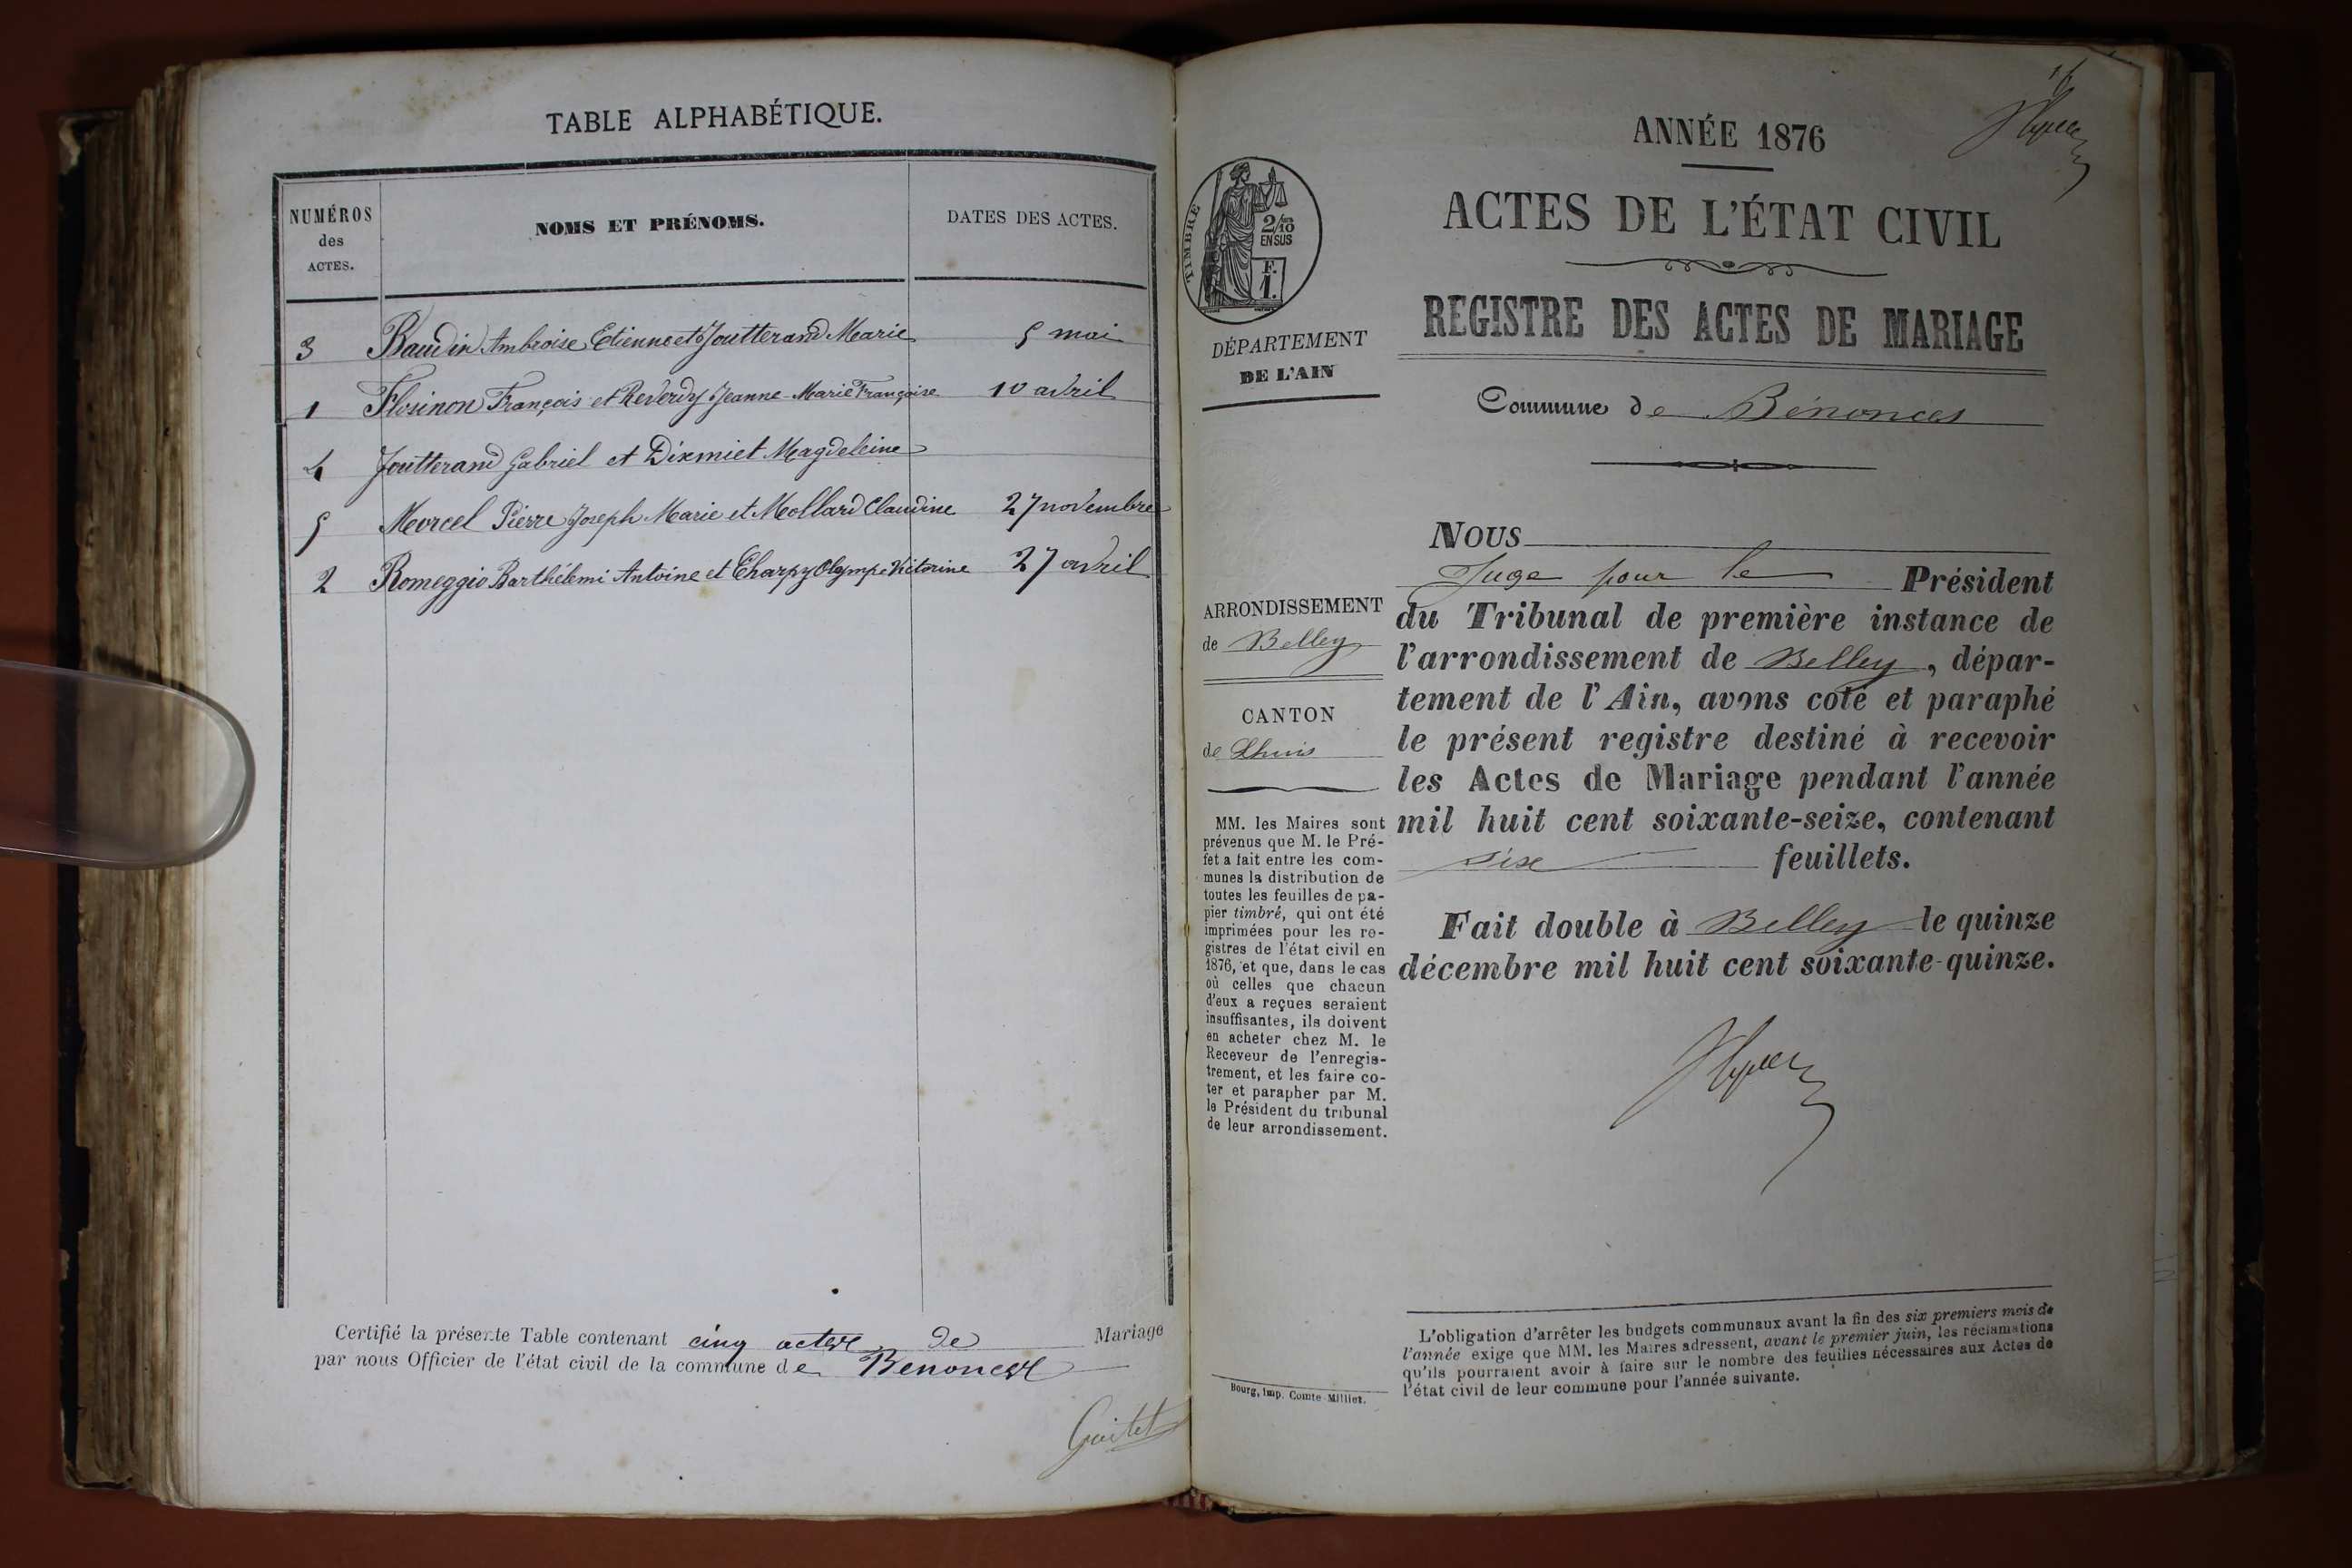 TABLE ALPHABÉTIQUE.
NUMÉROS
des
ACTES.
NOMS ET PRÉNOMS.
DATES DES ACTES.
3 Baudin Ambroise Etienne et Joutterand Marie 5 mai
1 Florinon François et Reverdy Jeanne Marie Françoise 10 avril
4 Joutterand Gabriel et Dixmiet Magdeleine
5 Morcel Pierre Joseph Marie et Mollard Claudine 27 novembre
2 Romeggio Barthélemi Antoine et Charpy Olympe Victorine 27 avril
Certifié la présente Table contenant cinq actes de Mariage
par nous Officier de l'état civil de la commune de Benonces
Guitet
ANNÉE 1876
ACTES DE L'ÉTAT CIVIL
REGISTRE DES ACTES DE MARIAGE
TIMBRE
2/10
EN SUS
F.
1.
DÉPARTEMENT
DE L'AIN
Commune de Bénonces
ARRONDISSEMENT
de Belley
CANTON
de Lhuis
MM. les Maires sont
prévenus que M. le Pré-
fet a fait entre les com-
munes la distribution de
toutes les feuilles de pa-
pier timbré, qui ont été
imprimées pour les re-
gistres de l'état civil en
1876, et que, dans le cas
où celles que chacun
d'eux a reçues seraient
insuffisantes, ils doivent
en acheter chez M. le
Receveur de l'enregis-
trement, et les faire co-
ter et parapher par M.
le Président du tribunal
de leur arrondissement.
Bourg, imp. Comte-Milliet.
NOUS
Juge pour le Président
du Tribunal de première instance de
l'arrondissement de Belley, dépar-
tement de l'Ain, avons coté et paraphé
le présent registre destiné à recevoir
les Actes de Mariage pendant l'année
mil huit cent soixante-seize, contenant
six feuillets.
Fait double à Belley le quinze
décembre mil huit cent soixante-quinze.
L'obligation d'arrêter les budgets communaux avant la fin des six premiers mois de
l'année exige que MM. les Maires adressent, avant le premier juin, les réclamations
qu'ils pourraient avoir à faire sur le nombre des feuilles nécessaires aux Actes de
l'état civil de leur commune pour l'année suivante.